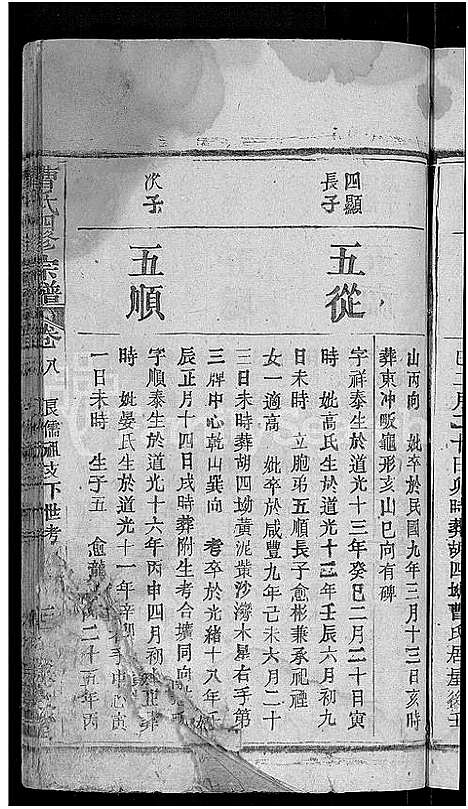 山丙向 妣卒於民國九年三月十三日亥時
葬東冲畈龜形亥山巳向有碑
四顯
長子
五從
字祥泰生於道光十三年癸巳二月二十日寅
時 妣高氏生於道光十二年壬辰六月初九
日未時 立胞弟五順長子愈彬兼承祀祧
女一適高 妣卒於咸豐九年己未六月二十
三日未時葬胡四坳黃泥叢沙灣木星右手第
三牌中心乾山巽向 考卒於光緒十八年
辰正月十四日戌時葬附生考合壙同向
次子
五順
字順泰生於道光十六年丙申四月初
時 妣晏氏生於道光十一年辛
一日未時 生子五 愈
二十五年丙
曹氏四修宗譜
卷八
下世考
二月二十日卯時葬胡四坳曹氏居屋後壬